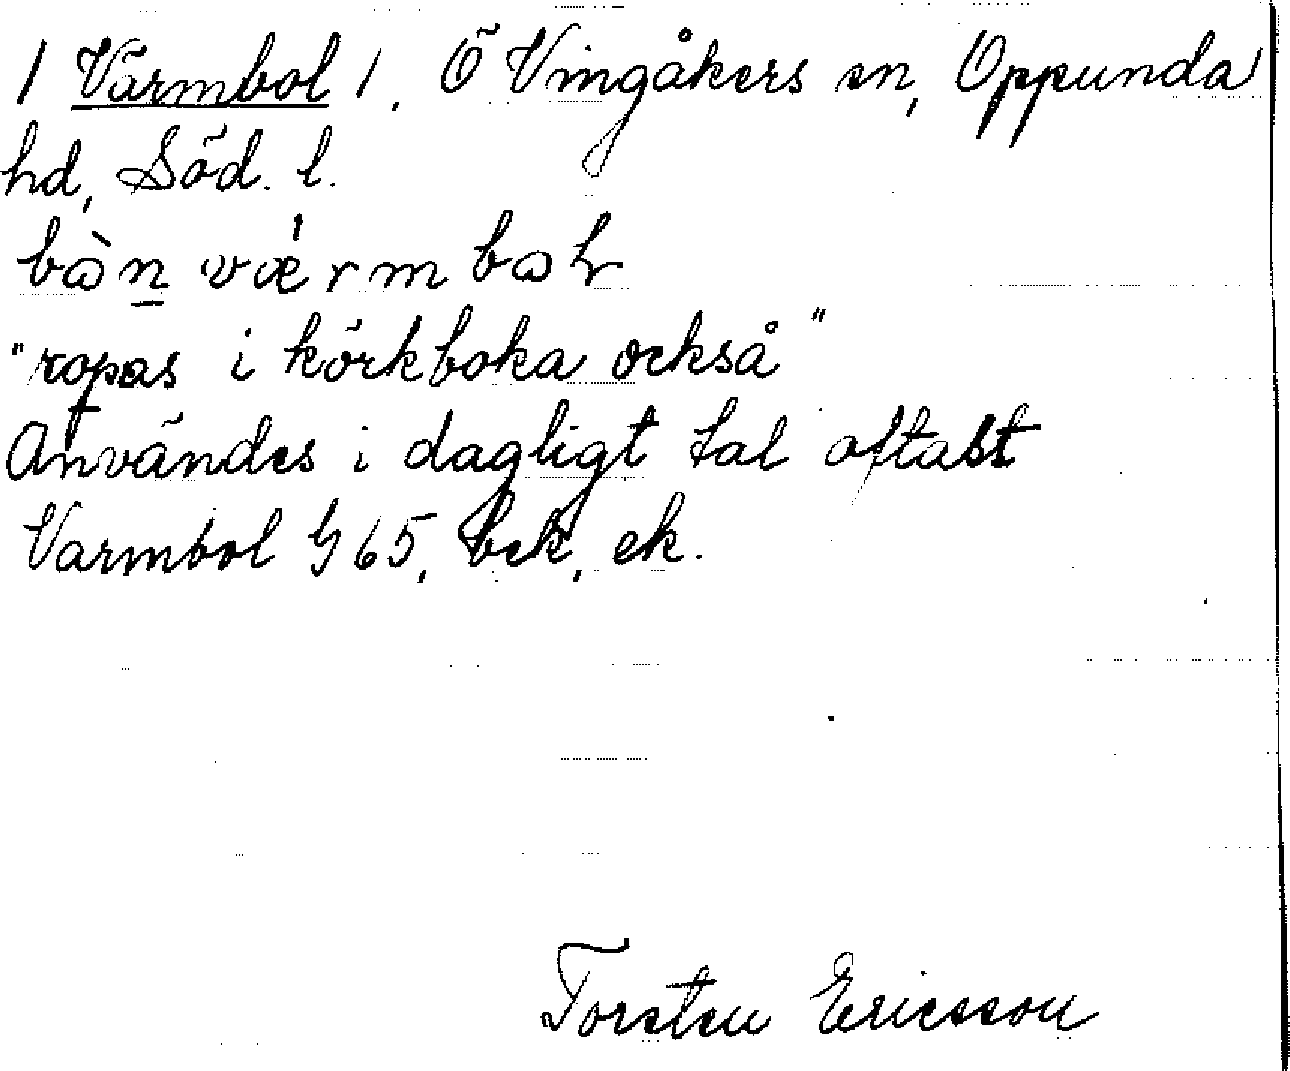 / Varmbol /, Ö Vingåkers sn, Oppunda
hd, Söd. l.
"ropas i körkboka också"
Användes i dagligt tal oftast
Varmbol G 65, bek, ek.
Torsten Ericsson